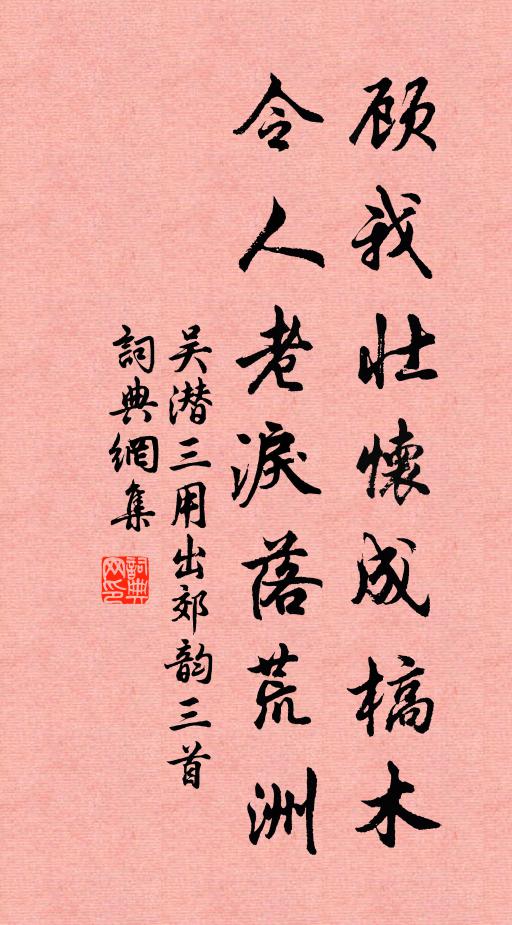 顾我壮懷成槁木
令人老淚落荒洲
吴潜三用出郊韵三首
詞典網集
詞典网印